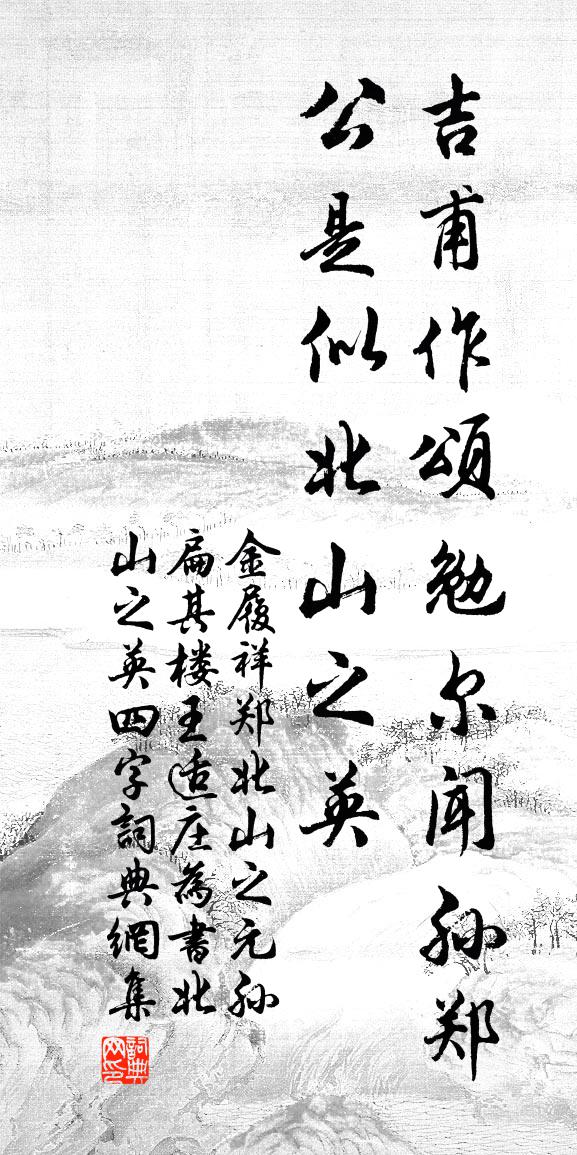 吉甫作頌勉尔闻孙郑
公是似北山之英
金履祥郑北山之元孙
扁其楼王适庄為書北
山之英四字詞典網集
詞典
网印